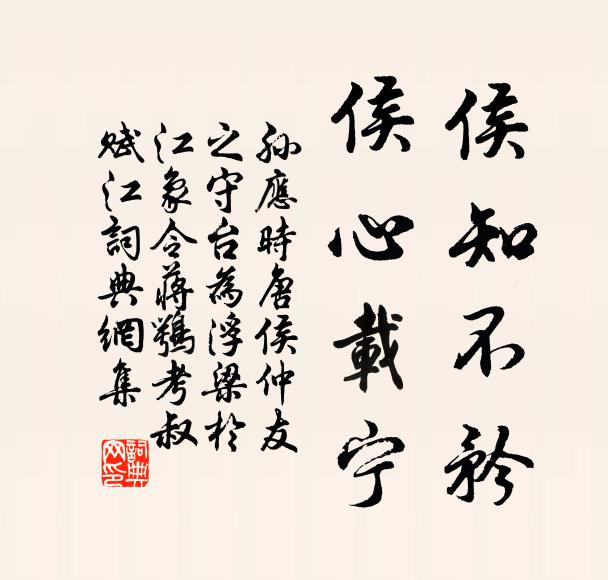 侯知不矜
侯心載宁
孫應時唐侯仲友
之守台為浮梁於
江象令蔣鶚考叔
賦江詞典網集
詞典网印